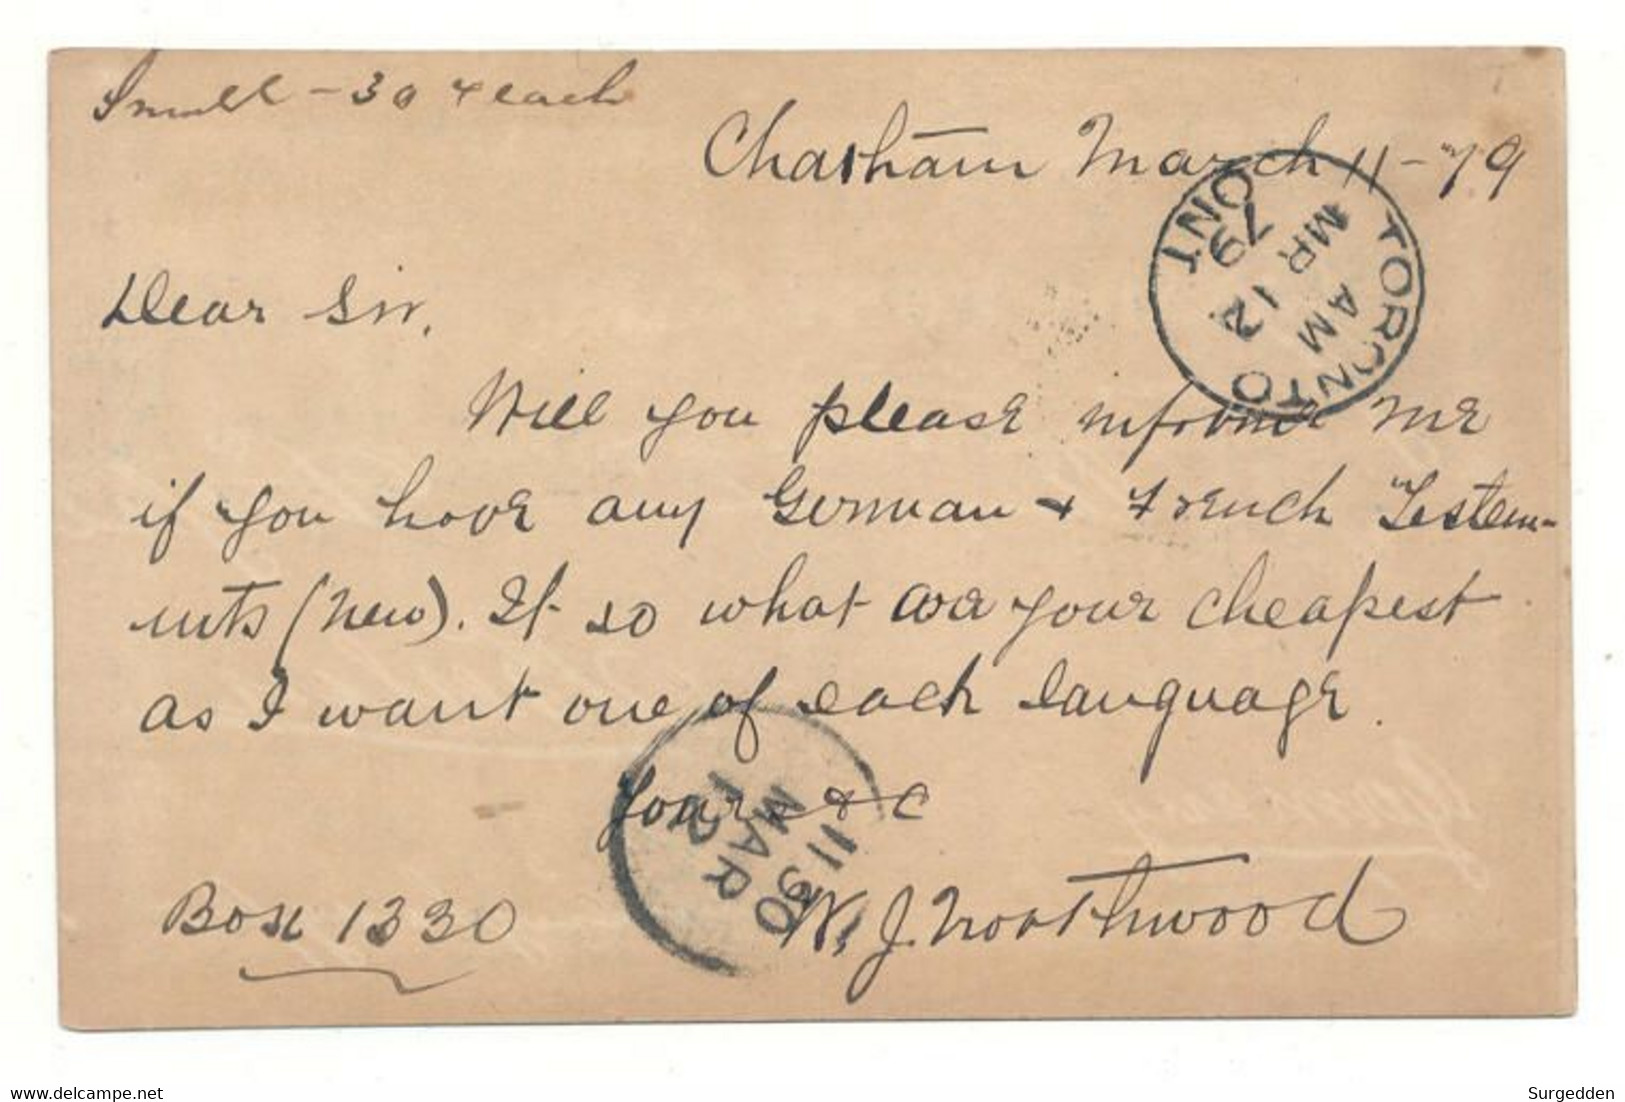 Small - 30 ¢ each
Chatham March 11 - 79
TORONTO ONT
AM
MR 12
79
Dear Sir.
Will you please informe me
if you have any German & French Testem-
ents (New). If so what are your cheapest
as I want one of each language.
Yours &c
11 30
MAR
12
Box 1330
W. J. Northwood
delcampe.net
Surgedden